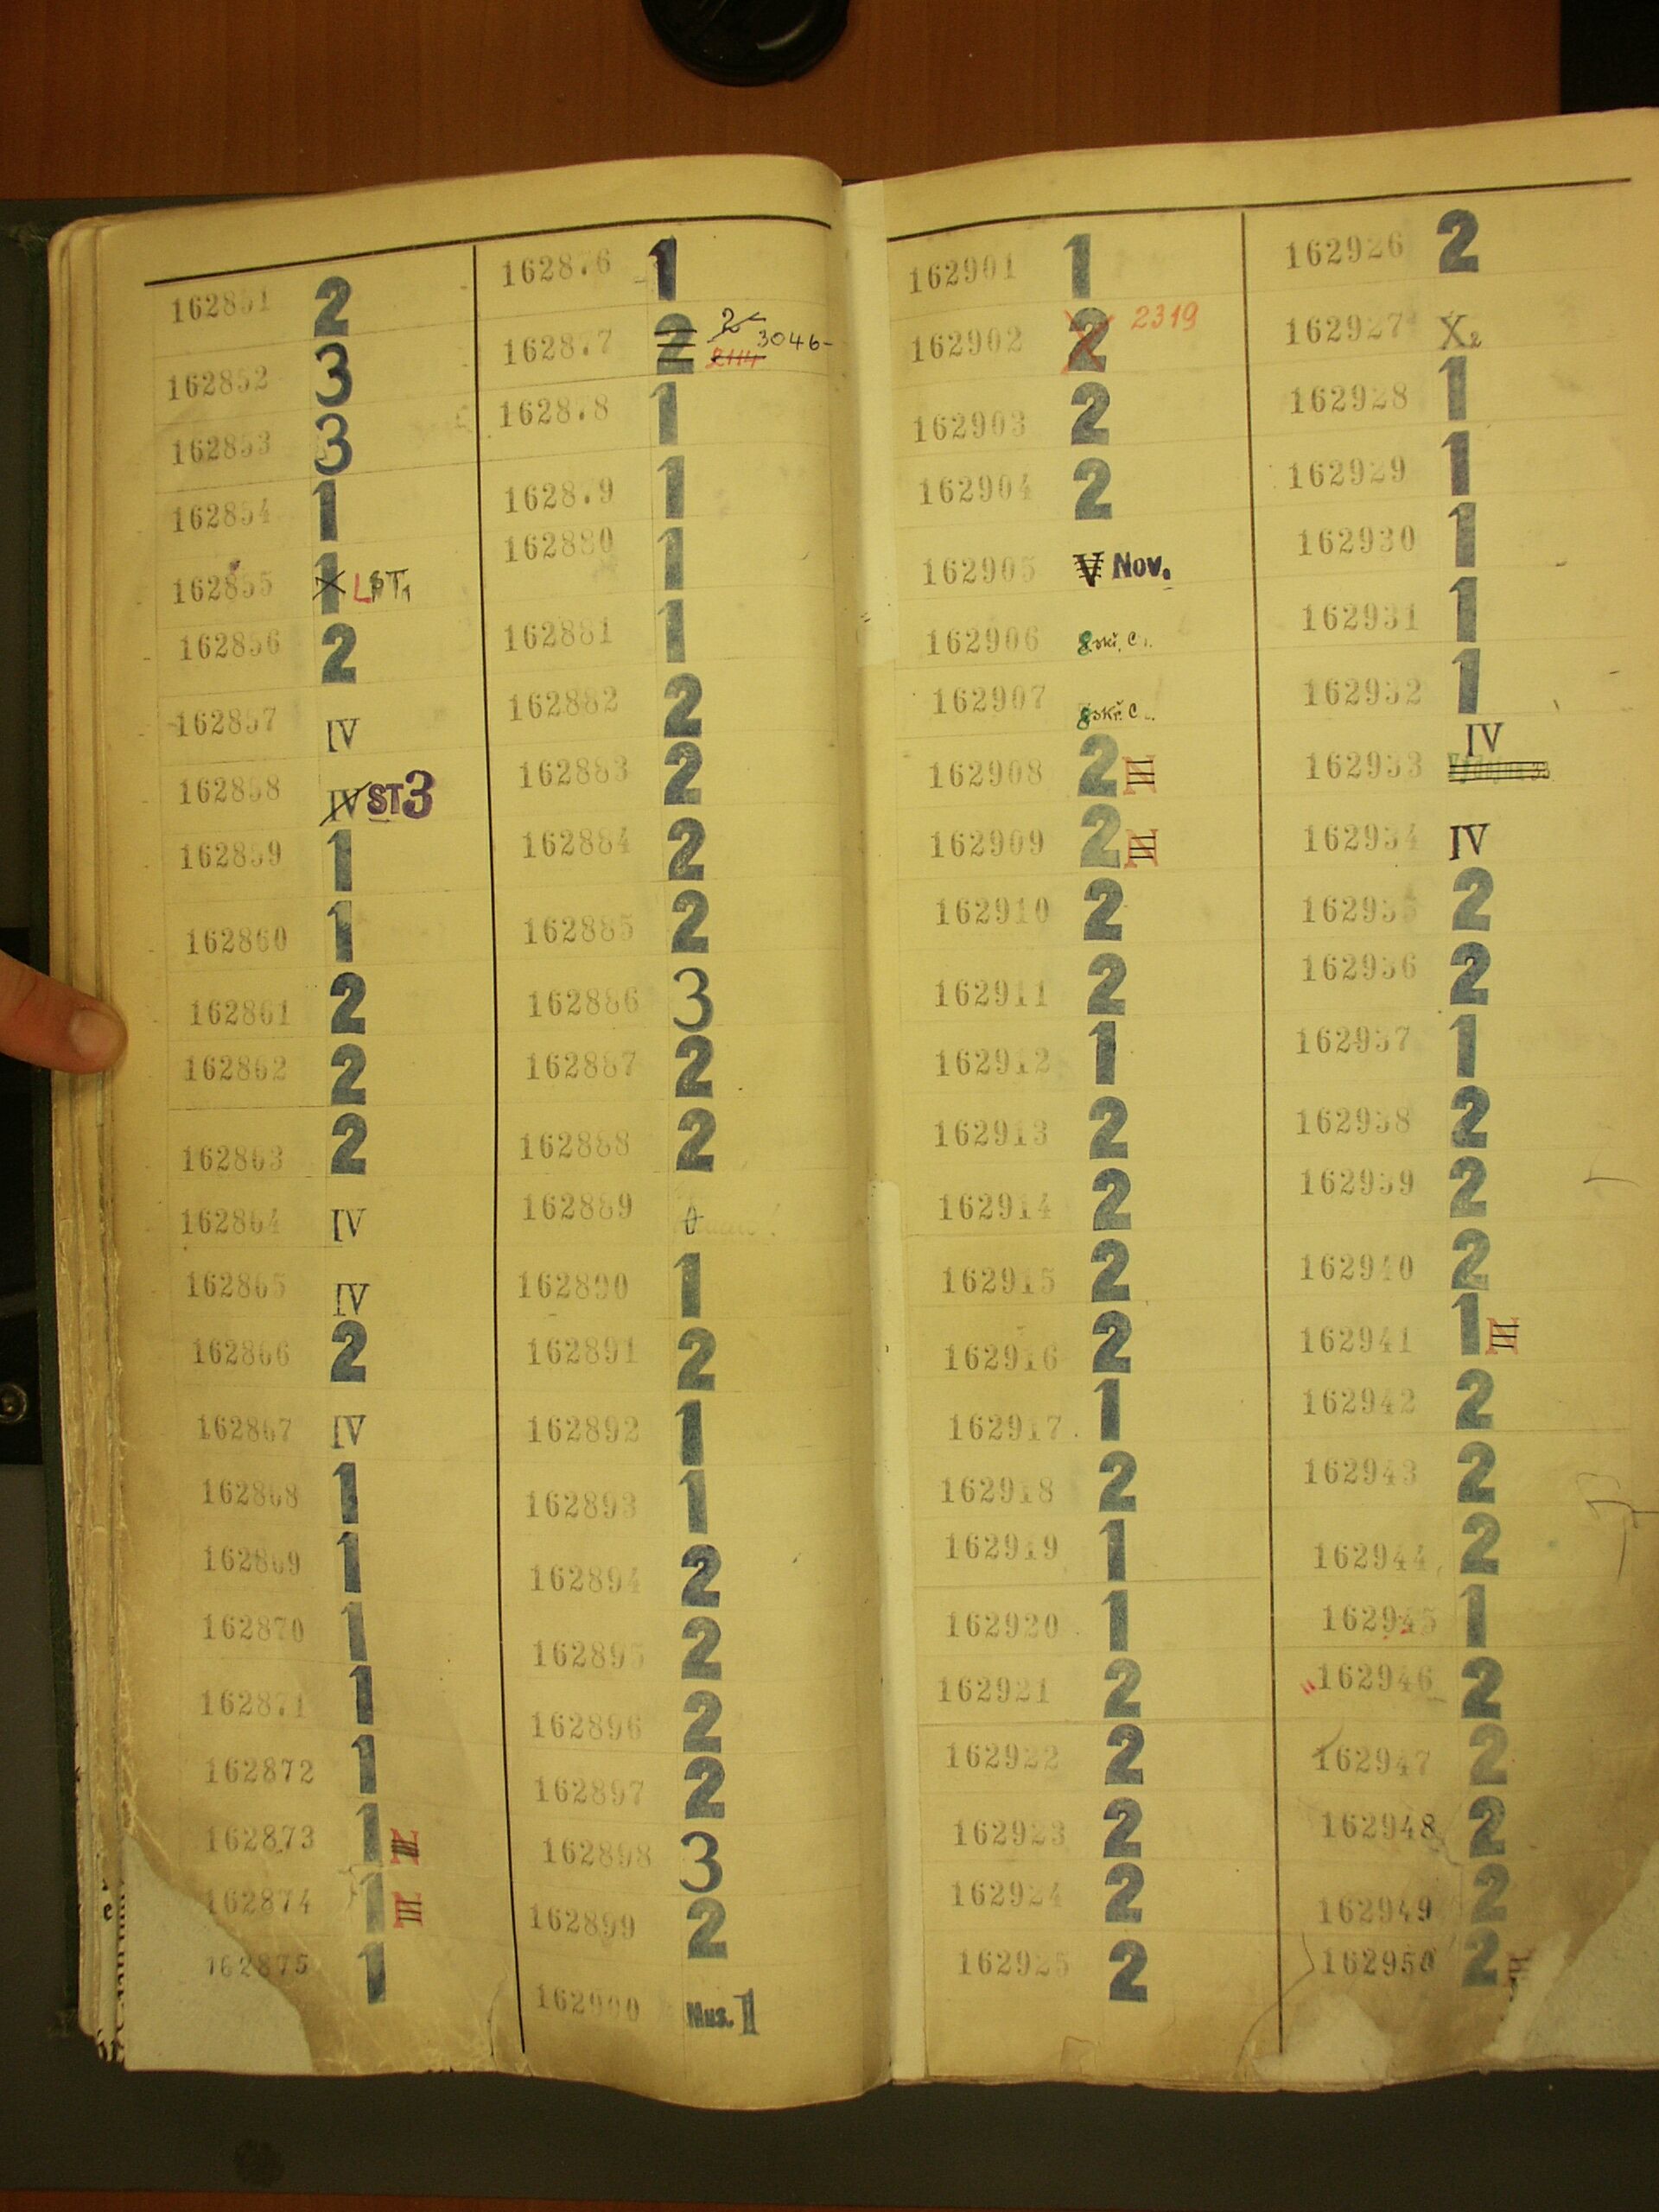 162851 2
162852 3
162853 3
162854 1
162855 1 LST1
162856 2
162857 IV
162858 IV ST3
162859 1
162860 1
162861 2
162862 2
162863 2
162864 IV
162865 IV
162866 2
162867 IV
162868 1
162869 1
162870 1
162871 1
162872 1
162873 1 N
162874 1 N
162875 1
162876 1
162877 2 2 3046-
2114
162878 1
162879 1
162880 1
162881 1
162882 2
162883 2
162884 2
162885 2
162886 3
162887 2
162888 2
162889
162890 1
162891 2
162892 1
162893 1
162894 2
162895 2
162896 2
162897 2
162898 3
162899 2
162900 Mus. 1
162901 1
162902 2 2319
162903 2
162904 2
162905 V Nov.
162906 8 skř. C
162907 8 skř. C
162908 2 N
162909 2 N
162910 2
162911 2
162912 1
162913 2
162914 2
162915 2
162916 2
162917 1
162918 2
162919 1
162920 1
162921 2
162922 2
162923 2
162924 2
162925 2
162926 2
162927 X2
162928 1
162929 1
162930 1
162931 1
162932 1
162933 IV
162934 IV
162935 2
162936 2
162937 1
162938 2
162939 2
162940 2
162941 1 N
162942 2
162943 2
162944 2
162945 1
162946 2
162947 2
162948 2
162949 2
162950 2